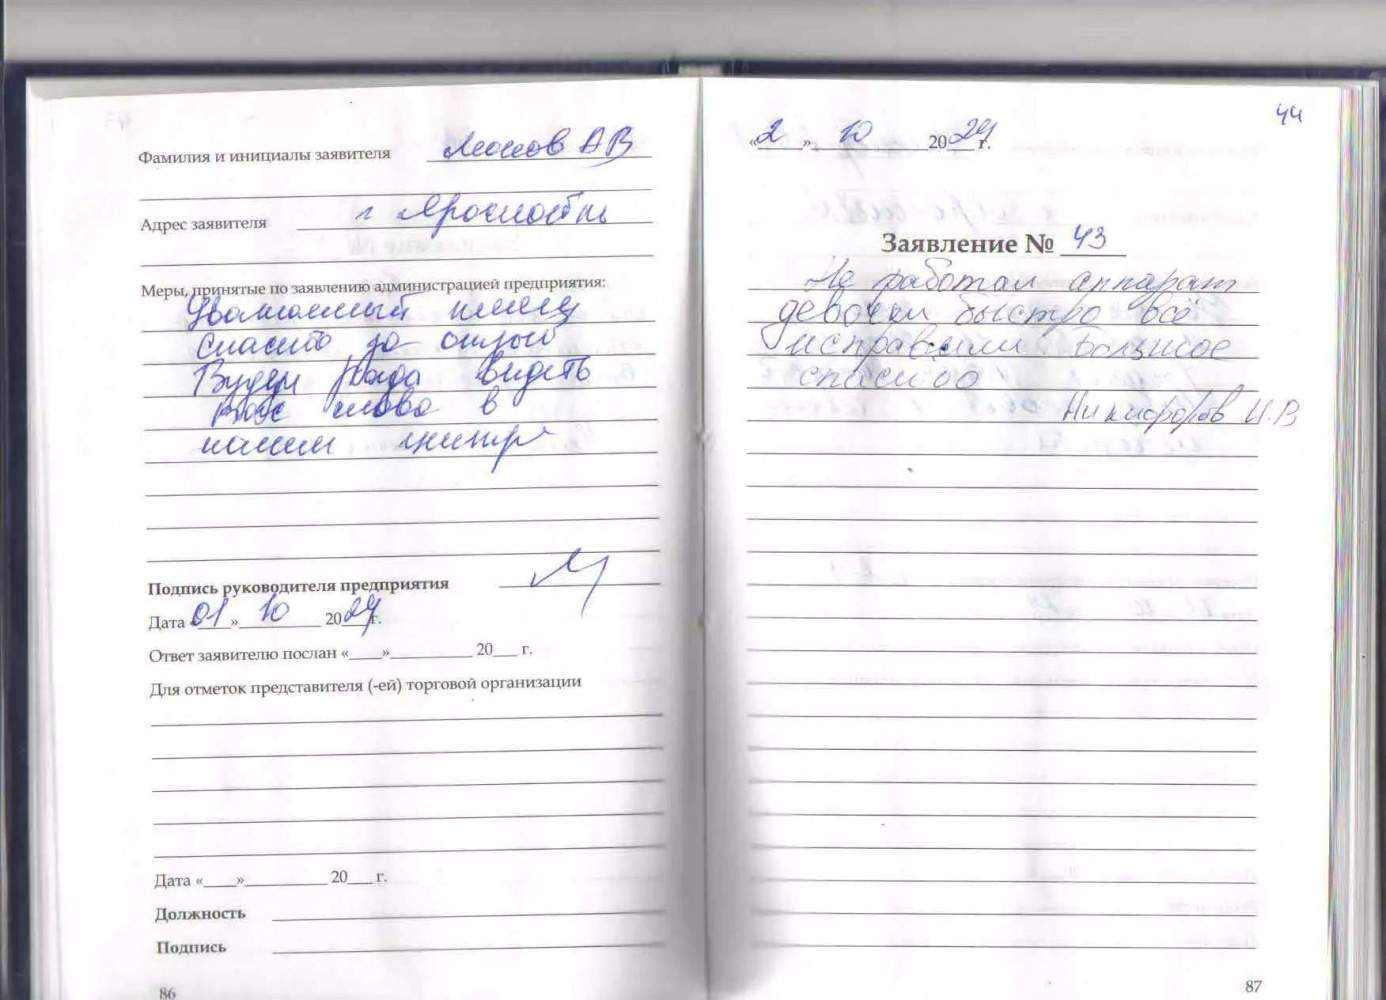 Фамилия и инициалы заявителя АВ
Адрес заявителя г Ярославль
Меры, принятые по заявлению администрацией предприятия:
Уважаемый клиент
Спасибо за отзыв
Будем рады видеть
вас снова в
нашем центре
Подпись руководителя предприятия
Дата «01» 10 2024г.
Ответ заявителю послан «____»__________ 20___ г.
Для отметок представителя (-ей) торговой организации
Дата «____»__________ 20___ г.
Должность
Подпись
86
44
«2» 10 2024 г.
Заявление № 43
Не работал аппарат
девочки быстро всё
исправили Большое
спасибо
Никифоров И.В
87